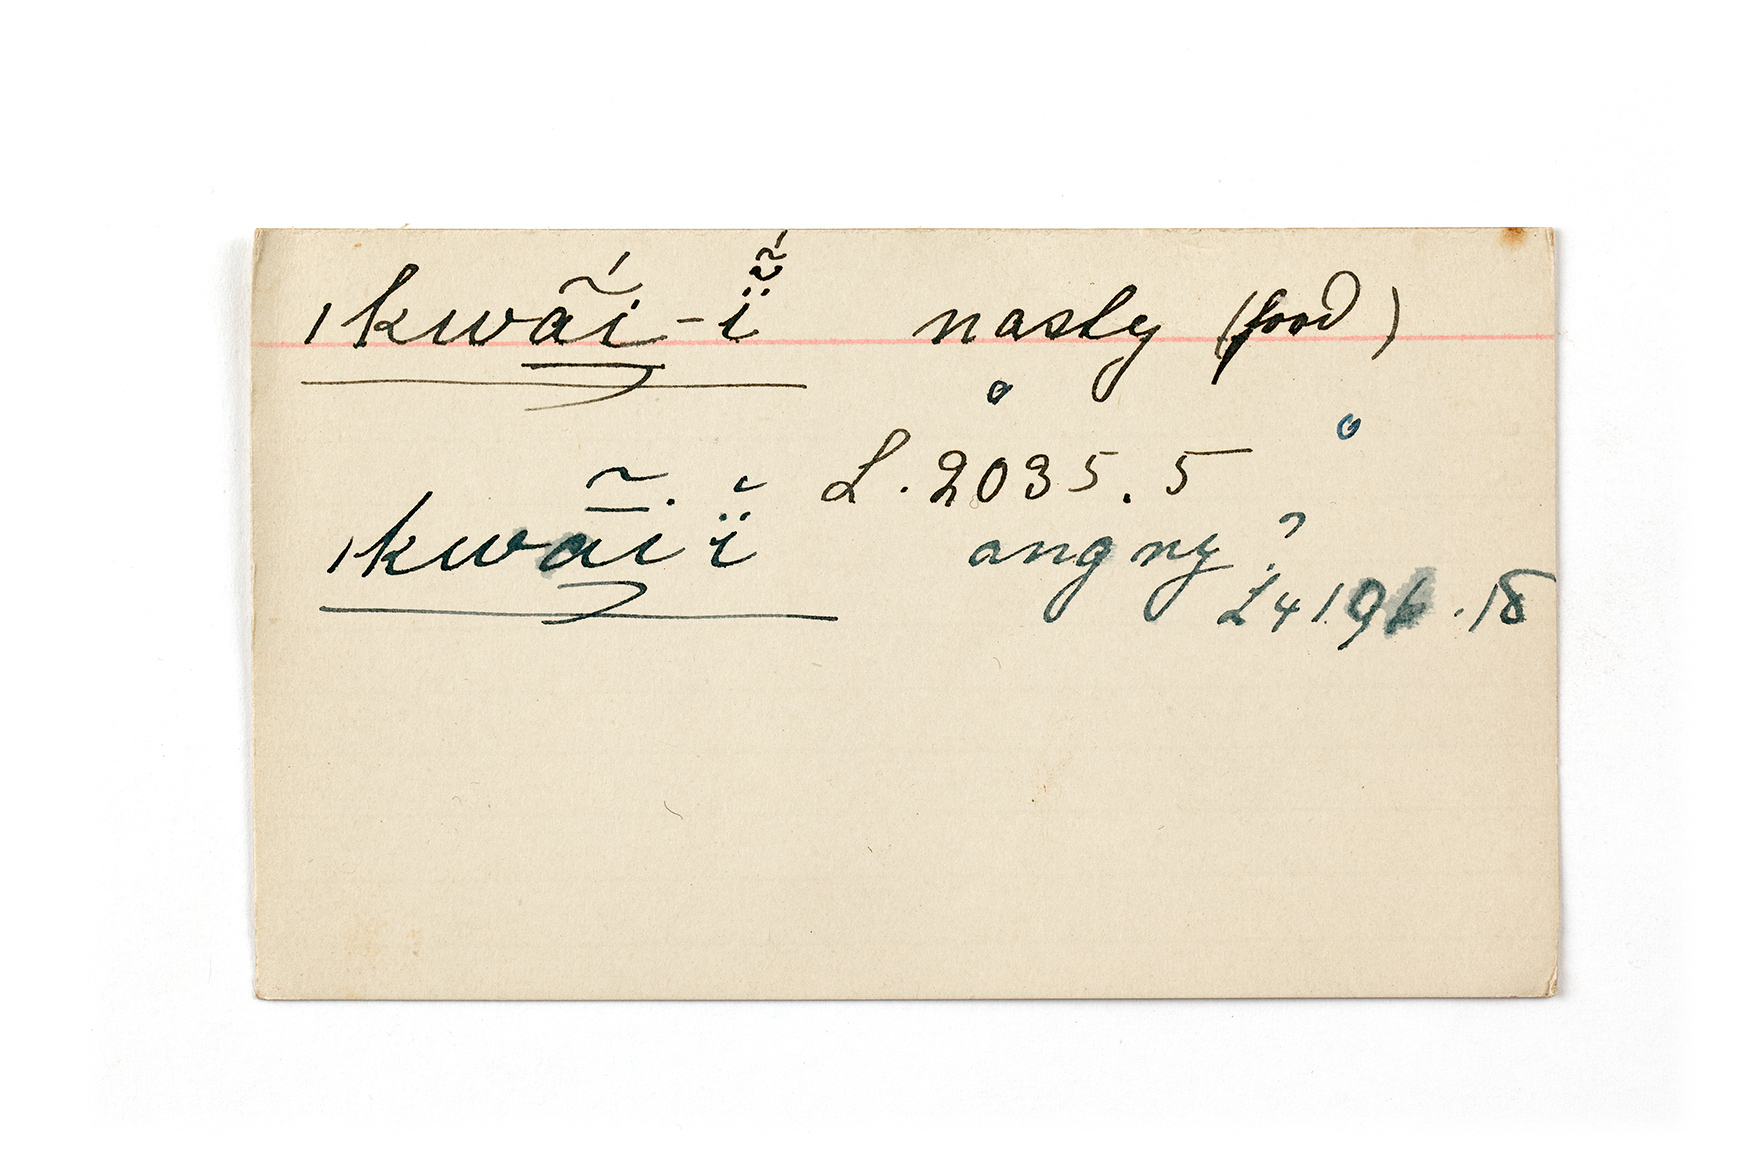 ǀkwā̃́i-ï̃́ nasty (food)
L. 2035. 5
ǀkwā̃i ĭ̈ angry?
L 4196. 18